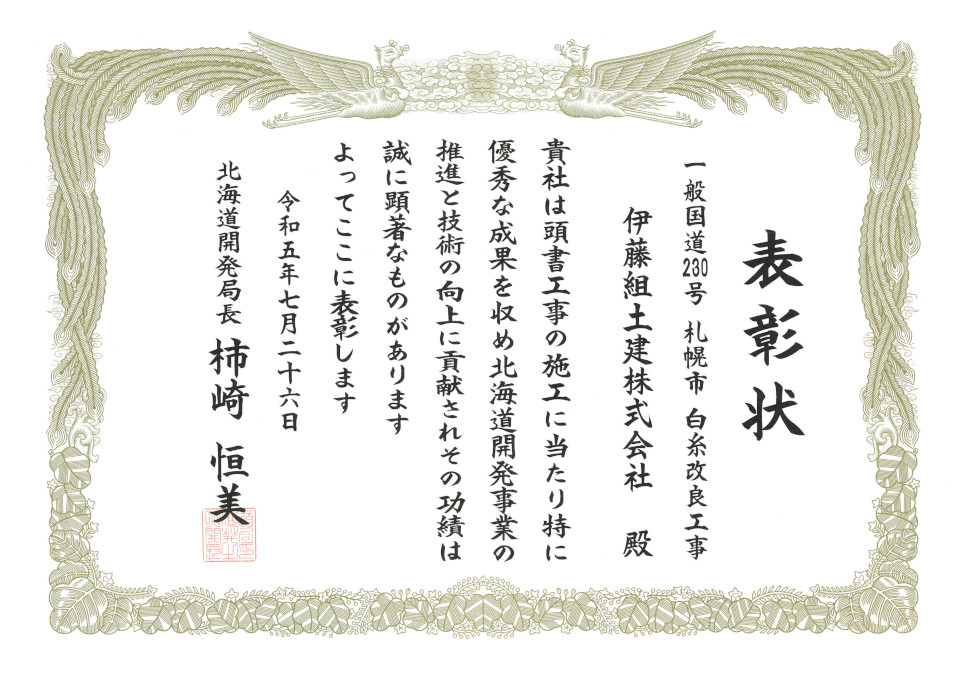 表彰状
一般国道230号 札幌市 白糸改良工事
伊藤組土建株式会社 殿
貴社は頭書工事の施工に当たり特に
優秀な成果を収め北海道開発事業の
推進と技術の向上に貢献されその功績は
誠に顕著なものがあります
よってここに表彰します
令和五年七月二十六日
北海道開発局長 柿崎 恒美